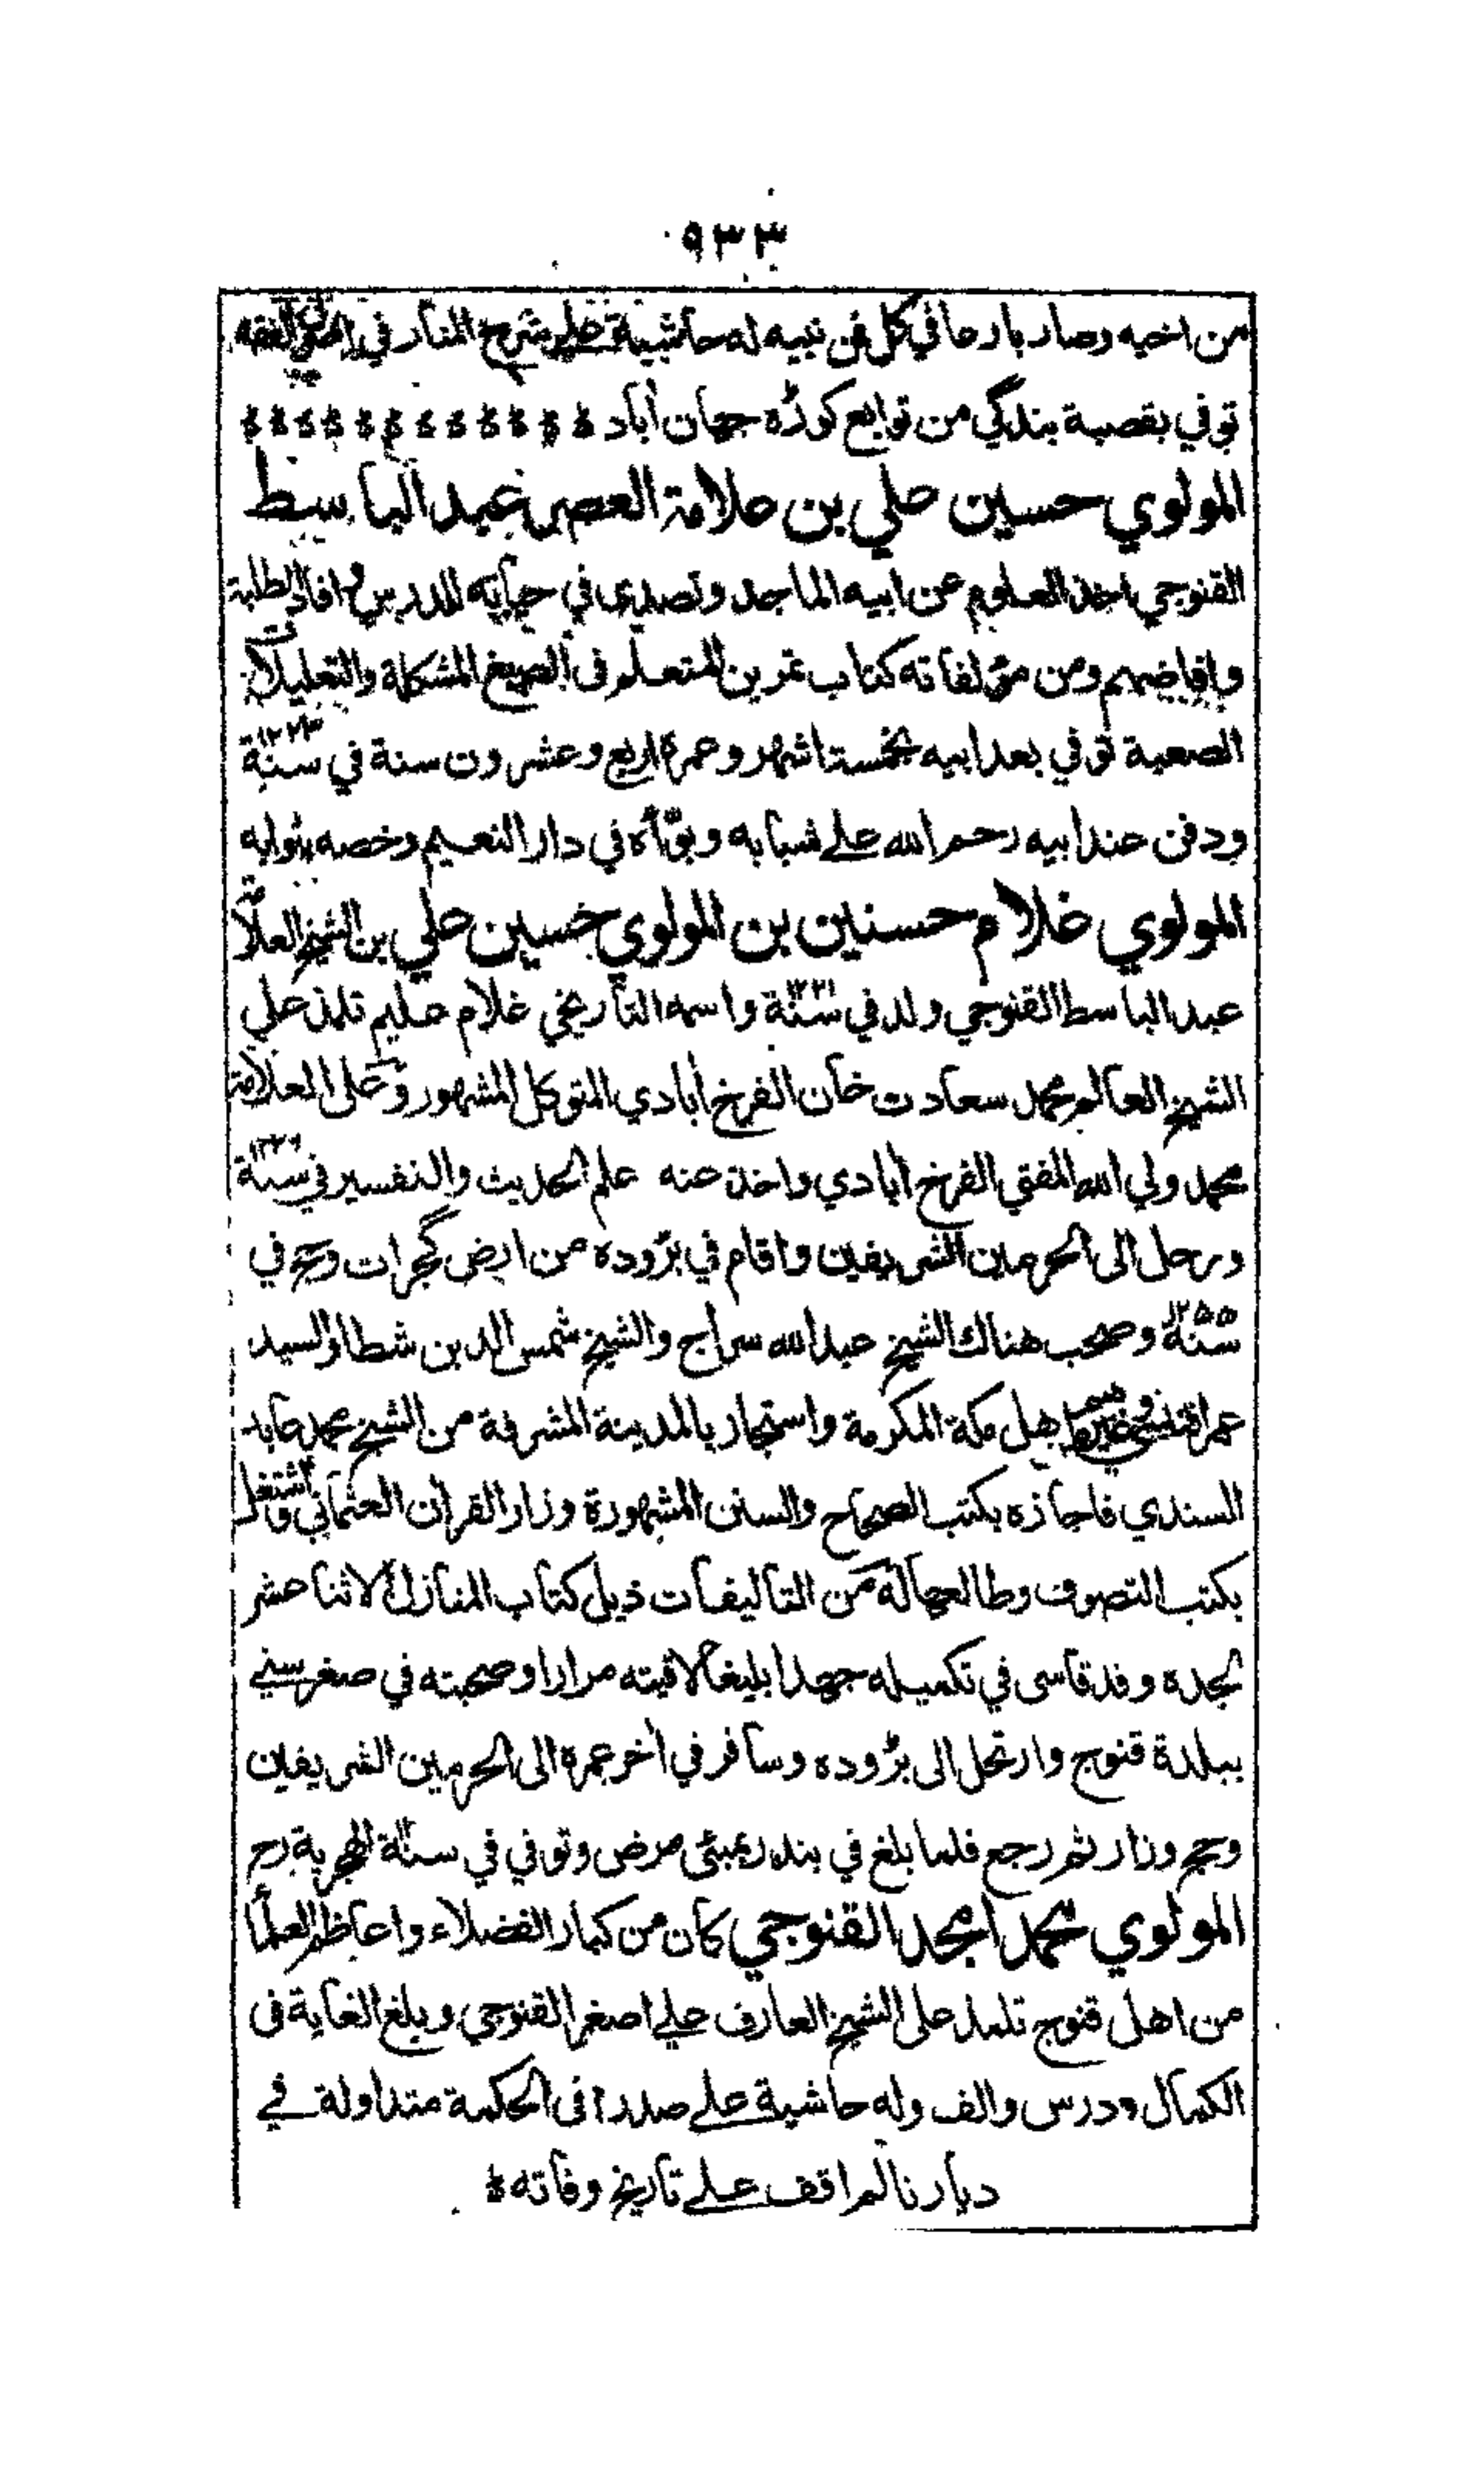 ٩٣٣
من اخيه وصار بارعا في كل فن نبيه له حاشية على شرح المنار في اصول الفقه
توفي بقصبة بندگي من توابع كوڑه جهان آباد
المولوي حسين علي بن علامة العصر عبد الباسط
القنوجي اخذ العلوم عن ابيه الماجد وتصدى في حياته للدرس وافاد الطلبة
وافاضهم ومن مؤلفاته كتاب تمرين المتعلم في الصيغ المشكلة والتعليلات
الصعبة توفي بعد ابيه بخمسة اشهر وعمره اربع وعشرون سنة في سنة ١٢٢٣
ودفن عند ابيه رحم الله علے شبابه وبوّأه في دار النعيم وخصه بثوابه
المولوي غلام حسنين بن المولوي حسين علي بن الشيخ العلّا
عبد الباسط القنوجي ولد في سنة ١٢٢١ واسمه التأريخي غلام حليم تلمذ علي
الشيخ العالم محمد سعادت خان الفرخ آبادي المتوكل المشهور وعلى العلامة
محمد ولي الله المفتي الفرخ آبادي واخذ عنه علم الحديث والتفسير في سنة
ورحل الى الحرمين الشريفين واقام في بڑوده من ارض گجرات وحج في
سنة ١٢٥٥ وصحب هناك الشيخ عبد الله سراج والشيخ شمس الدين شطا والسيد
عمر افندي وغيرهم من اهل مكة المكرمة واستجاز بالمدينة المشرفة من الشيخ محمد عابد
السندي فاجازه بكتب الصحاح والسنن المشهورة وزار القرآن العثماني واشتغل
بكتب التصوف وطالعها له من التاليفات ذيل كتاب المنازل الاثنا عشر
لجده وقد قاسى في تكميله جهدا بليغا لاقيته مرارا وصحبته في صغر سني
ببلدة قنوج وارتحل الى بڑوده وسافر في آخر عمره الى الحرمين الشريفين
وحج وزار ثم رجع فلما بلغ في بندر بمبئى مرض وتوفي في سنة الهجرية رح
المولوي محمد امجد القنوجي كان من كبار الفضلاء واعاظم العلما
من اهل قنوج تلمذ على الشيخ العارف علي اصغر القنوجي وبلغ الغاية في
الكمال ودرس والف وله حاشية علے صدرا في الحكمة متداولة في
ديارنا لم اقف علے تاريخ وفاته